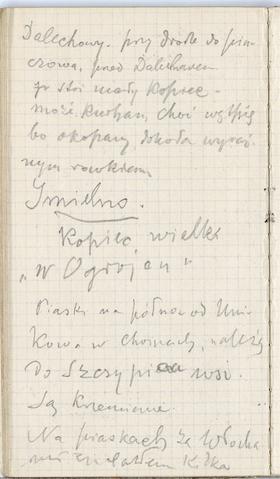 Dalechowy. przy drodze do Piń-
czowa, przed Dalechowem
jest mały kopiec -
może kurhan, choć wątpię
bo okopany dokoła wyraź-
nym rowkiem
Imielno.
Kopiec wielki
„w Ogrojcu"
Piaski na północ od Umi-
kowa w chojnach, należą
do Szczypiec wsi.
Są krzemienie.
Na piaskach za Włocha-
mi znalazłem kilka